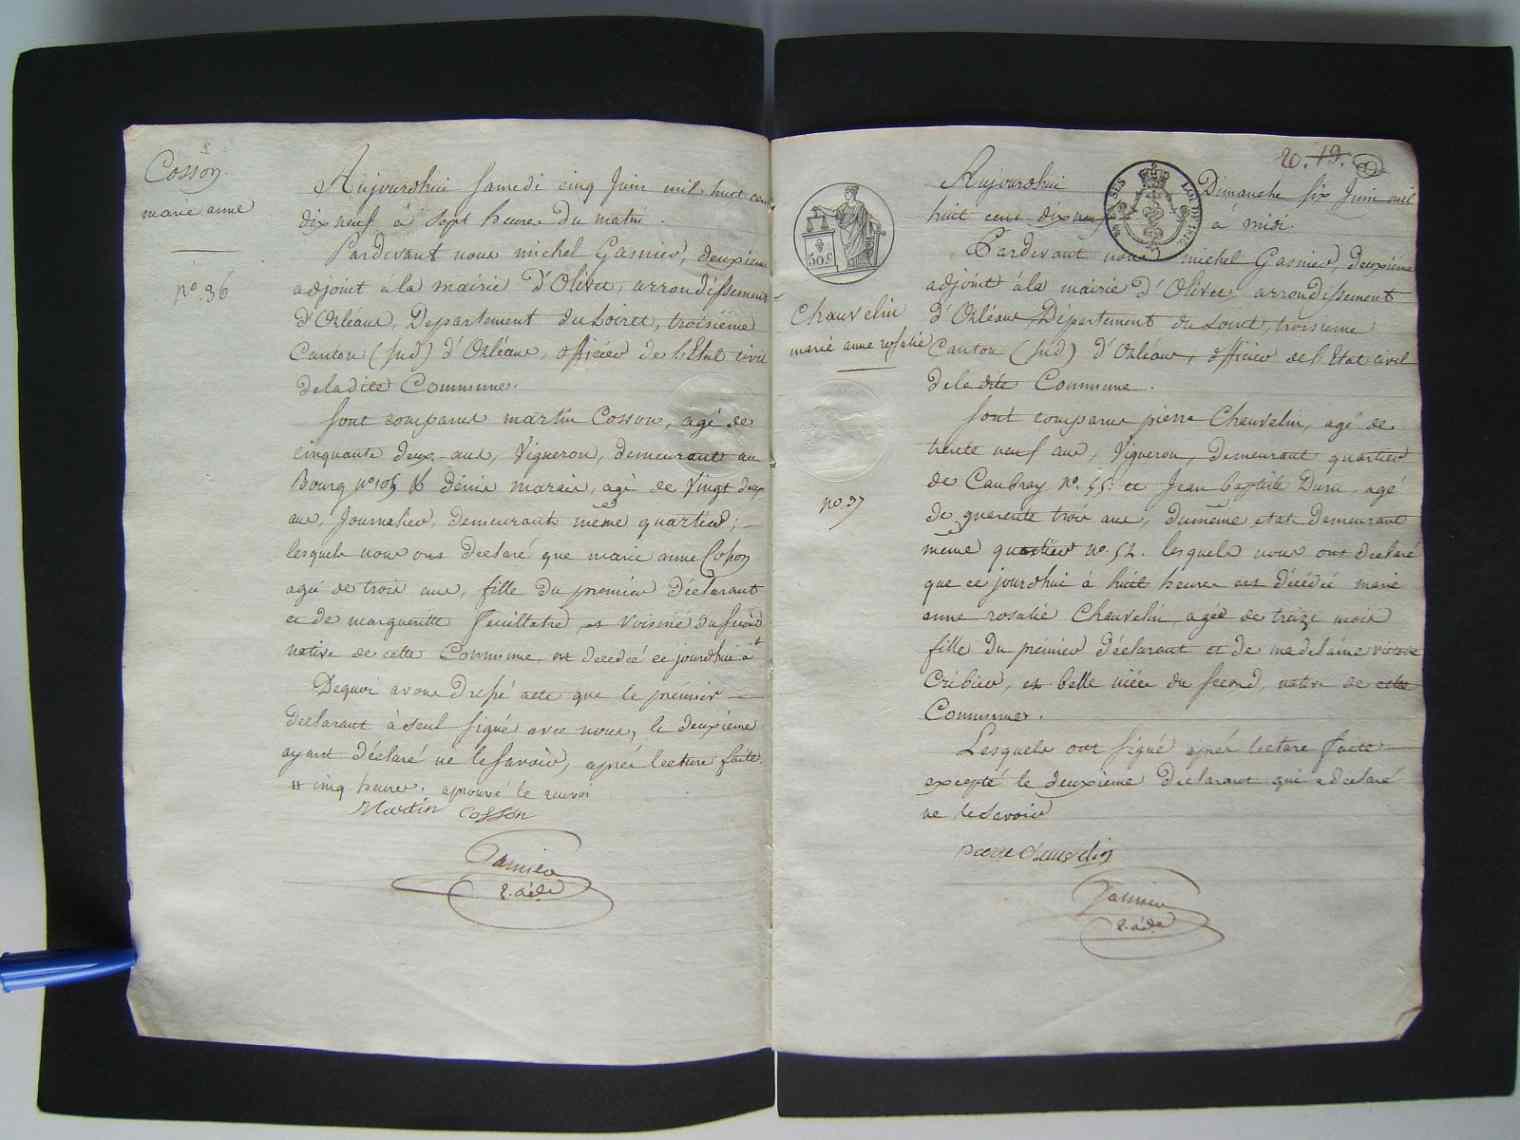 Cosson
marie anne
n° 36
Aujourdhui Samedi cinq Juin mil huit cent
dix neuf à Sept heures du matin.
Pardevant nous michel Gasnier, deuxieme
adjoint à la mairie D'Olivet, arrondissement
D'Orléans, Departement du Loiret, troisième
Canton (Sud) d'Orléans, officier de l'Etat civil
de la dite Commune.
Sont comparus martin Cosson, agé de
cinquante deux ans, Vigneron, demeurant au
Bourg n° 105 & denis, agé de Vingt deux
ans, Journalier, demeurant même quartier;
lesquels nous ont declaré que marie anne Cosson
agée de trois ans, fille du premier Déclarant
et de marguerite et voisine du second
native de cette Commune est decedée ce jourdhui à
Dequoi avons dressé acte que le premier
declarant à seul signé avec nous, le deuxieme
ayant déclaré ne le savoir, après lecture faite.
# cinq heures. aprouvé le renvoi
Martin Cosson
Gasnier
2. adj.
20. 19.
50 c
LOI DE
Chauvelin
marie anne rosalie
n° 37
Aujourdhui Dimanche six Juin mil
huit cent dix neuf à midi.
Pardevant nous michel Gasnier, deuxième
adjoint à la mairie D'Olivet, arrondissement
d'Orléans, Département du Loiret, troisieme
Canton (Sud) d'Orléans, officier de l'Etat civil
de la dite Commune.
Sont comparus pierre Chauvelin, agé de
trente neuf ans, Vigneron, demeurant quartier
de Caubray n°. 55. et Jean baptiste Duru agé
de quarente trois ans, du même etat demeurant
même quartier n°. 52. lesquels nous ont declaré
que ce jourdhui à huit heures est décédée marie
anne rosalie Chauvelin agée de treize mois
fille du premier déclarant et de madelaine victoire
Cribier, et belle niéce du second, native de cette
Commune.
Lesquels ont signé après lecture faite
excepté le deuxième Declarant qui a declaré
ne le savoir
pierre chauvelin
Gasnier
2. adj.